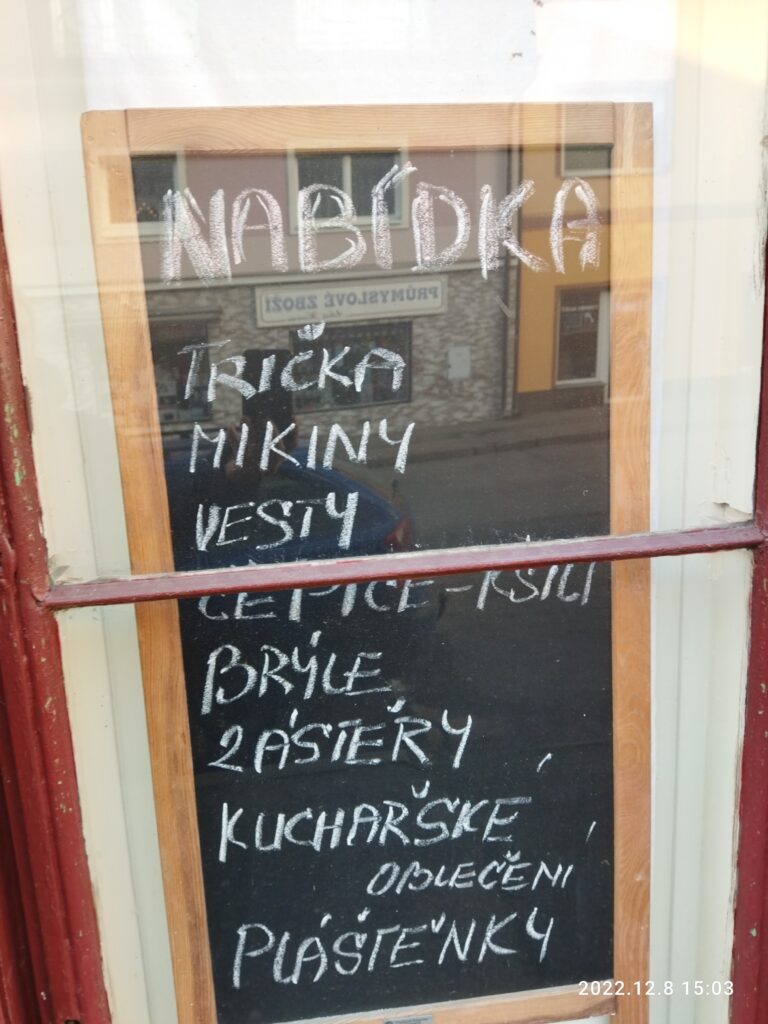 NABÍDKA
PRŮMYSLOVÉ ZBOŽÍ
TRIČKA
MIKINY
VESTY
ČEPICE - KŠILT
BRÝLE
ZÁSTĚRY
KUCHAŘSKÉ
OBLEČENÍ
PLÁŠTĚNKY
2022.12.8 15:03